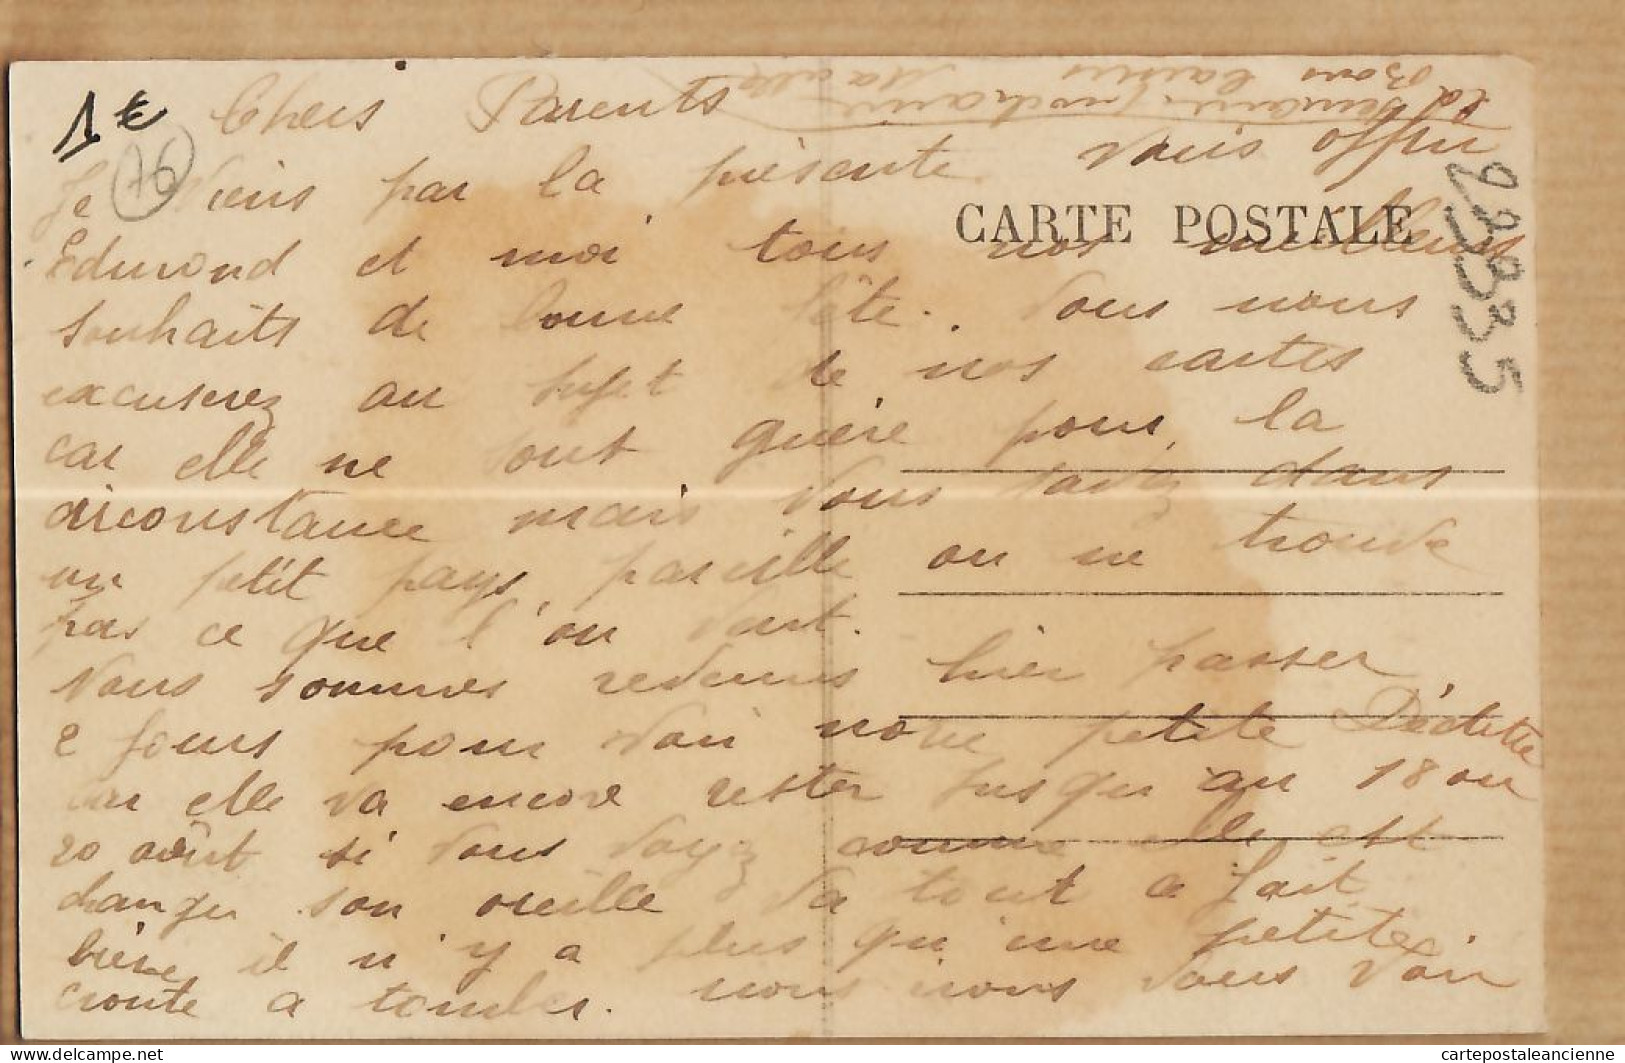 1€
76
Chers Parents
Je viens par la présente vous offrir
CARTE POSTALE
22335
Edmond et moi tous nos meilleurs
souhaits de bonne fête. Vous nous
excuserez au sujet de nos cartes
car elle ne sont guère pour la
circonstance mais vous savez dans
un petit pays pareille on ne trouve
pas ce que l'on veut.
Nous sommes redenus hier passer
2 jours pour voir notre petite
car elle va encore rester jusqu'au 18 ou
20 août si vous voyez comme elle est
changer son oreille va tout a fait
bien il n'y a plus qu'une petite
croute a tomber. nous irons vous voir
la semaine prochaine
Bons baisers
cartepostaleancienne
delcampe.net